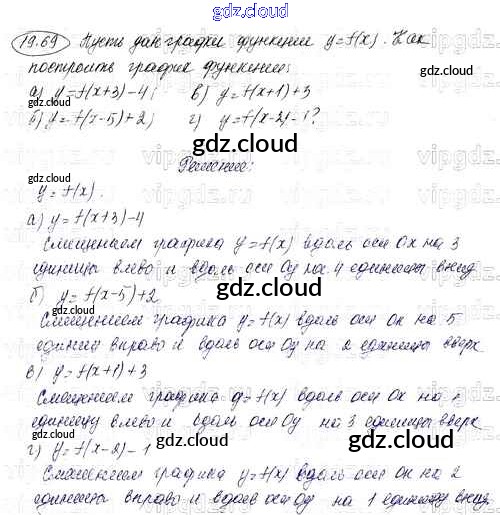 gdz.cloud
19.69 Пусть дан график функции y=f(x). Как
gdz.cloud
построить график функции:
а) y=f(x+3)-4; в) y=f(x+1)+3
б) y=f(x-5)+2; г) y=f(x-2)-1?
gdz.cloud
Решение:
gdz.cloud
y=f(x).
а) y=f(x+3)-4
Смещением графика y=f(x) вдоль оси Ox на 3
единицы влево и вдоль оси Oy на 4 единицы вниз
gdz.cloud
б) y=f(x-5)+2
gdz.cloud
Смещением графика y=f(x) вдоль оси Ox на 5
единиц вправо и вдоль оси Oy на 2 единицы вверх
в) y=f(x+1)+3
gdz.cloud
Смещением графика y=f(x) вдоль оси Ox на 1
единицу влево и вдоль оси Oy на 3 единицы вверх
gdz.cloud
г) y=f(x-2)-1
gdz.cloud
Смещением графика y=f(x) вдоль оси Ox на 2
единицы вправо и вдоль оси Oy на 1 единицу вниз
gdz.cloud